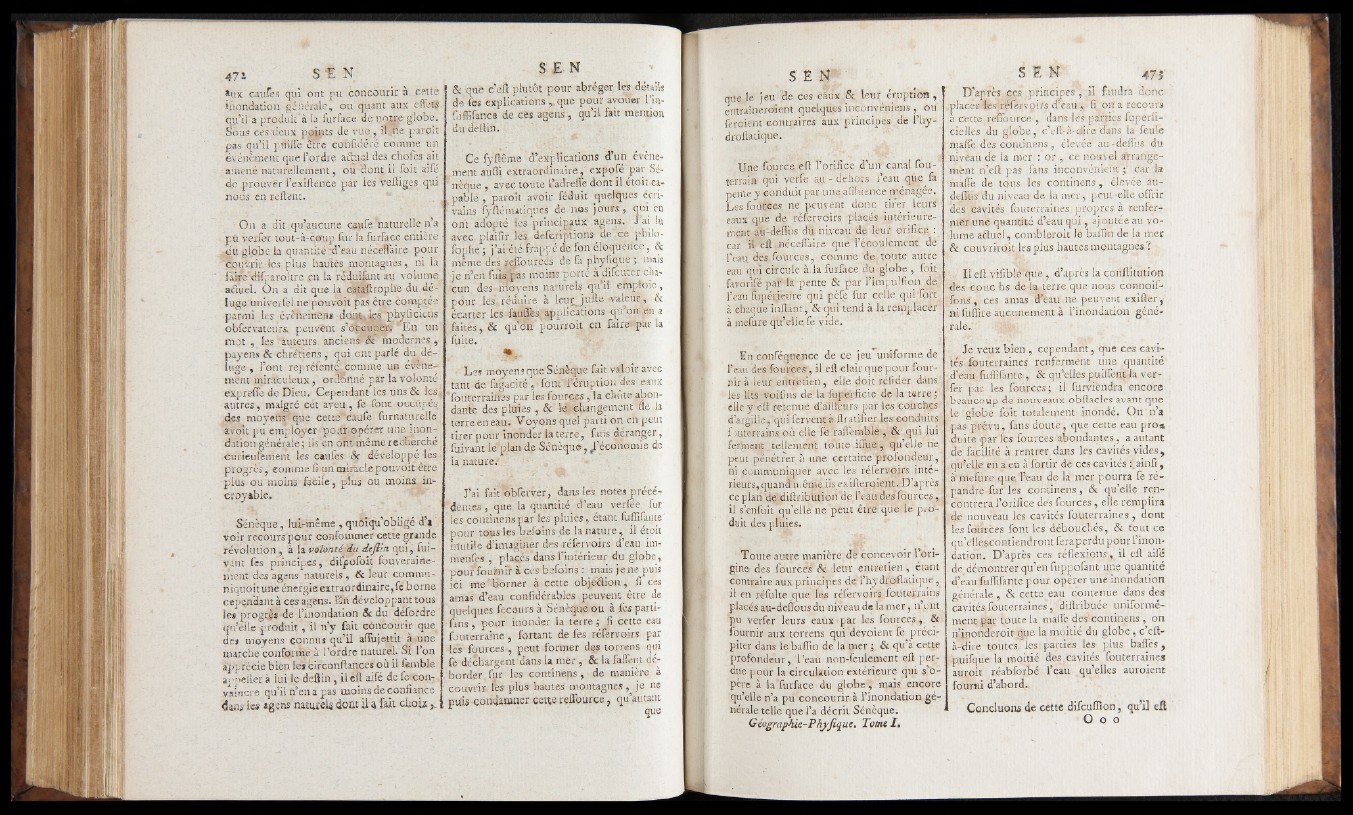 472 SEN
aux causes qui ont pu concourir à cette
inondation générale, ou quant aux effets
qu'il a produit à la surface de notre globe.
Sous ces deux points de vue, il ne paroît
pas qu'il puisse être considéré comme un
événement que l'ordre actuel des choses ait
amené naturellement, ou dont il soit aisé
de prouver l'existence par les vestiges qui
nous en restent.
On a dit qu'aucune cause naturelle n'a
pu verser tout-à-coup sur la surface entière
du globe la quantité d'eau nécessaire pour
couvrir les plus hautes montagnes, ni la
faire disparoitre en la réduisant au volume
actuel. On a dit que la catastrophe du dé-
luge universel ne pouvoit pas être comptée
parmi les évènemens dont les physiciens
observateurs peuvent s'occuper. En un
mot, les auteurs anciens & modernes,
payens & chrétiens, qui ont parlé du dé-
luge, l'ont représenté comme un évène-
ment miraculeux, ordonné par la volonté
expresse de Dieu. Cependant les uns & les
autres, malgré cet aveu, se sont occupés
des moyens que cette cause surnaturelle
avoit pu employer pour opérer une inon-
dation générale; ils en ont même recherché
curieusement les causes & développé les
progrès, comme si un miracle pouvoit être
plus ou moins facile, plus ou moins in-
croyable.
Sénèque, lui-même, quoiqu'obligé d'a
voir recours pour consommer cette grande
révolution, à la volonté du destin qui, sui-
vant ses principes, disposoit souveraine-
ment des agens naturels, & leur commu-
niquoit une énergie extraordinaire, se borne
cependant à ces agens. En développant tous
les progrès de l'inondation & du désordre
qu'elle produit, il n'y fait concourir que
des moyens connus qu'il assujettit à une
marche conforme à l'ordre naturel. Si l'on
apprécie bien les circonstances où il semble
appeller à lui le destin, il est aisé de se con-
vaincre qu'il n'en a pas moins de confiance
dans les agens naturels dont il a fait choix,
SEN
& que c'est plutôt pour abréger les détails
de ses explications, que pour avouer l'in-
suffisance de ces agens, qu'il fait mention
du destin.
Ce systême d'explications d'un évène-
ment aussi extraordinaire, exposé par Sé-
nèque, avec toute l'adresse dont il étoit ca-
pable, paroît avoir séduit quelques écri-
vains systématiques de nos jours, qui en
ont adopté les principaux agens. J'ai lu
avec plaisir les descriptions de ce philo-
sophe; j'ai été frappé de son éloquence, &
même des ressources de sa physique; mais
je n'en suis pas moins porté à discuter cha-
cun des moyens naturels qu'il emploie,
pour les réduire à leur juste valeur, &
écarter les fausses applications qu'on en a
faites, & qu'on pourroit en faire par la
suite.
Les moyens que Sénèque fait valoir avec
tant de sagacité, sont l'éruption des eaux
souterraines par les sources, la chûte abon-
dante des pluies, & le changement de la
terre en eau. Voyons quel parti on en peut
tirer pour inonder la terre, sans déranger,
suivant le plan de Sénèque, l'économie de
la nature.
J'ai fait observer, dans les notes précé-
dentes, que la quantité d'eau versée sur
les continens par les pluies, étant suffisante
pour tous les besoins de la nature, il étoit
inutile d'imaginer des réservoirs d'eau im-
menses, placés dans l'intérieur du globe,
pour fournir à ces besoins: mais je ne puis
ici me borner à cette objection, si ces
amas d'eau considérables peuvent être de
quelques secours à Sénèque ou à ses parti-
sans, pour inonder la terre; si cette eau
souterraine, sortant de ses réservoirs par
les sources, peut former des torrens qui
se déchargent dans la mer, & la fassent dé-
border sur les continens, de manière à
couvrir les plus hautes montagnes, je ne
puis condamner cette ressource, qu'autant
que
SEN
que le jeu de ces eaux & leur éruption,
entraîneroient quelques inconvéniens, ou
seroient contraires aux principes de l'hy-
drostatique.
Une source est l'orifice d'un canal sou-
terrain qui verse au-dehors l'eau que sa
pente y conduit par une affluence ménagée.
Les sources ne peuvent donc tirer leurs
eaux que de réservoirs placés intérieure-
ment au-dessus du niveau de leur orifice:
car il est nécessaire que l'écoulement de
l'eau des sources, comme de toute autre
eau qui circule à la surface du globe, soit
favorisé par la pente & par l'impulsion de
l'eau supérieure qui pèse sur celle qui sort
à chaque instant, & qui tend à la remplacer
à mesure qu'elle se vide.
En conséquence de ce jeu uniforme de
l'eau des sources, il est clair que pour four-
nir à leur entretien, elle doit résider dans
les lits voisins de la superficie de la terre;
elle y est retenue d'ailleurs par les couches
d'argille, qui servent à stratifier les conduits
souterrains où elle se rassemble, & qui lui
ferment tellement toute issue, qu'elle ne
peut pénétrer à une certaine profondeur,
ni communiquer avec les réservoirs inté-
rieurs, quand même ils existeroient. D'après
ce plan de distribution de l'eau des sources,
il s'ensuit qu'elle ne peut être que le pro-
duit des pluies.
Toute autre manière de concevoir l'ori-
gine des sources & leur entretien, étant
contraire aux principes de l'hydrostatique,
il en résulte que les réservoirs souterrains
placés au-dessous du niveau de la mer, n'ont
pu verser leurs eaux par les sources, &
fournir aux torrens qui devoient se préci-
piter dans le bassin de la mer; & qu'à cette
profondeur, l'eau non-seulement est per-
due pour la circulation extérieure qui s'o-
père à la surface du globe, mais encore
qu'elle n'a pu concourir à l'inondation gé-
nérale telle que l'a décrit Sénèque.
Géographie-Physique. Tome I.
SEN 473
D'après ces principes, il faudra donc
placer les réservoirs d'eau, si on a recours
à cette ressource, dans les parties superfi-
cielles du globe, c'est-à-dire dans la seule
masse des continens, élevée au-dessus du
niveau de la mer: or, ce nouvel arrange-
ment n'est pas sans inconvénient; car la
masse de tous les continens, élevée au-
dessus du niveau de la mer, peut-elle offrir
des cavités souterraines propres à renfer-
mer une quantité d'eau qui, ajoutée au vo-
lume actuel, combleroit le bassin de la mer
& couvriroit les plus hautes montagnes?
Il est visible que, d'après la constitution
des couches de la terre que nous connois-
sons, ces amas d'eau ne peuvent exister,
ni suffire aucunement à l'inondation géné-
rale.
Je veux bien, cependant, que ces cavi-
tés souterraines renferment une quantité
d'eau suffisante, & qu'elles puissent la ver-
ser par les sources; il surviendra encore
beaucoup de nouveaux obstacles avant que
le globe soit totalement inondé. On n'a
pas prévu, sans doute, que cette eau pro-
duite par les sources abondantes, a autant
de facilité à rentrer dans les cavités vides,
qu'elle en a eu à sortir de ces cavités: ainsi,
à mesure que l'eau de la mer pourra se ré-
pandre sur les continens, & qu'elle ren-
contrera l'orifice des sources, elle remplira
de nouveau les cavités souterraines, dont
les sources sont les débouchés, & tout ce
qu'elles contiendront sera perdu pour l'inon-
dation. D'après ces réflexions, il est aisé
de démontrer qu'en supposant une quantité
d'eau suffisante pour opérer une inondation
générale, & cette eau contenue dans des
cavités souterraines, distribuée uniformé-
ment par toute la masse des continens, on
n'inonderoit que la moitié du globe, c'est-
à-dire toutes les parties les plus basses,
puisque la moitié des cavités souterraines
auroit réabsorbé l'eau qu'elles auroient
fourni d'abord.
Concluons de cette discussion, qu'il est
Ooo